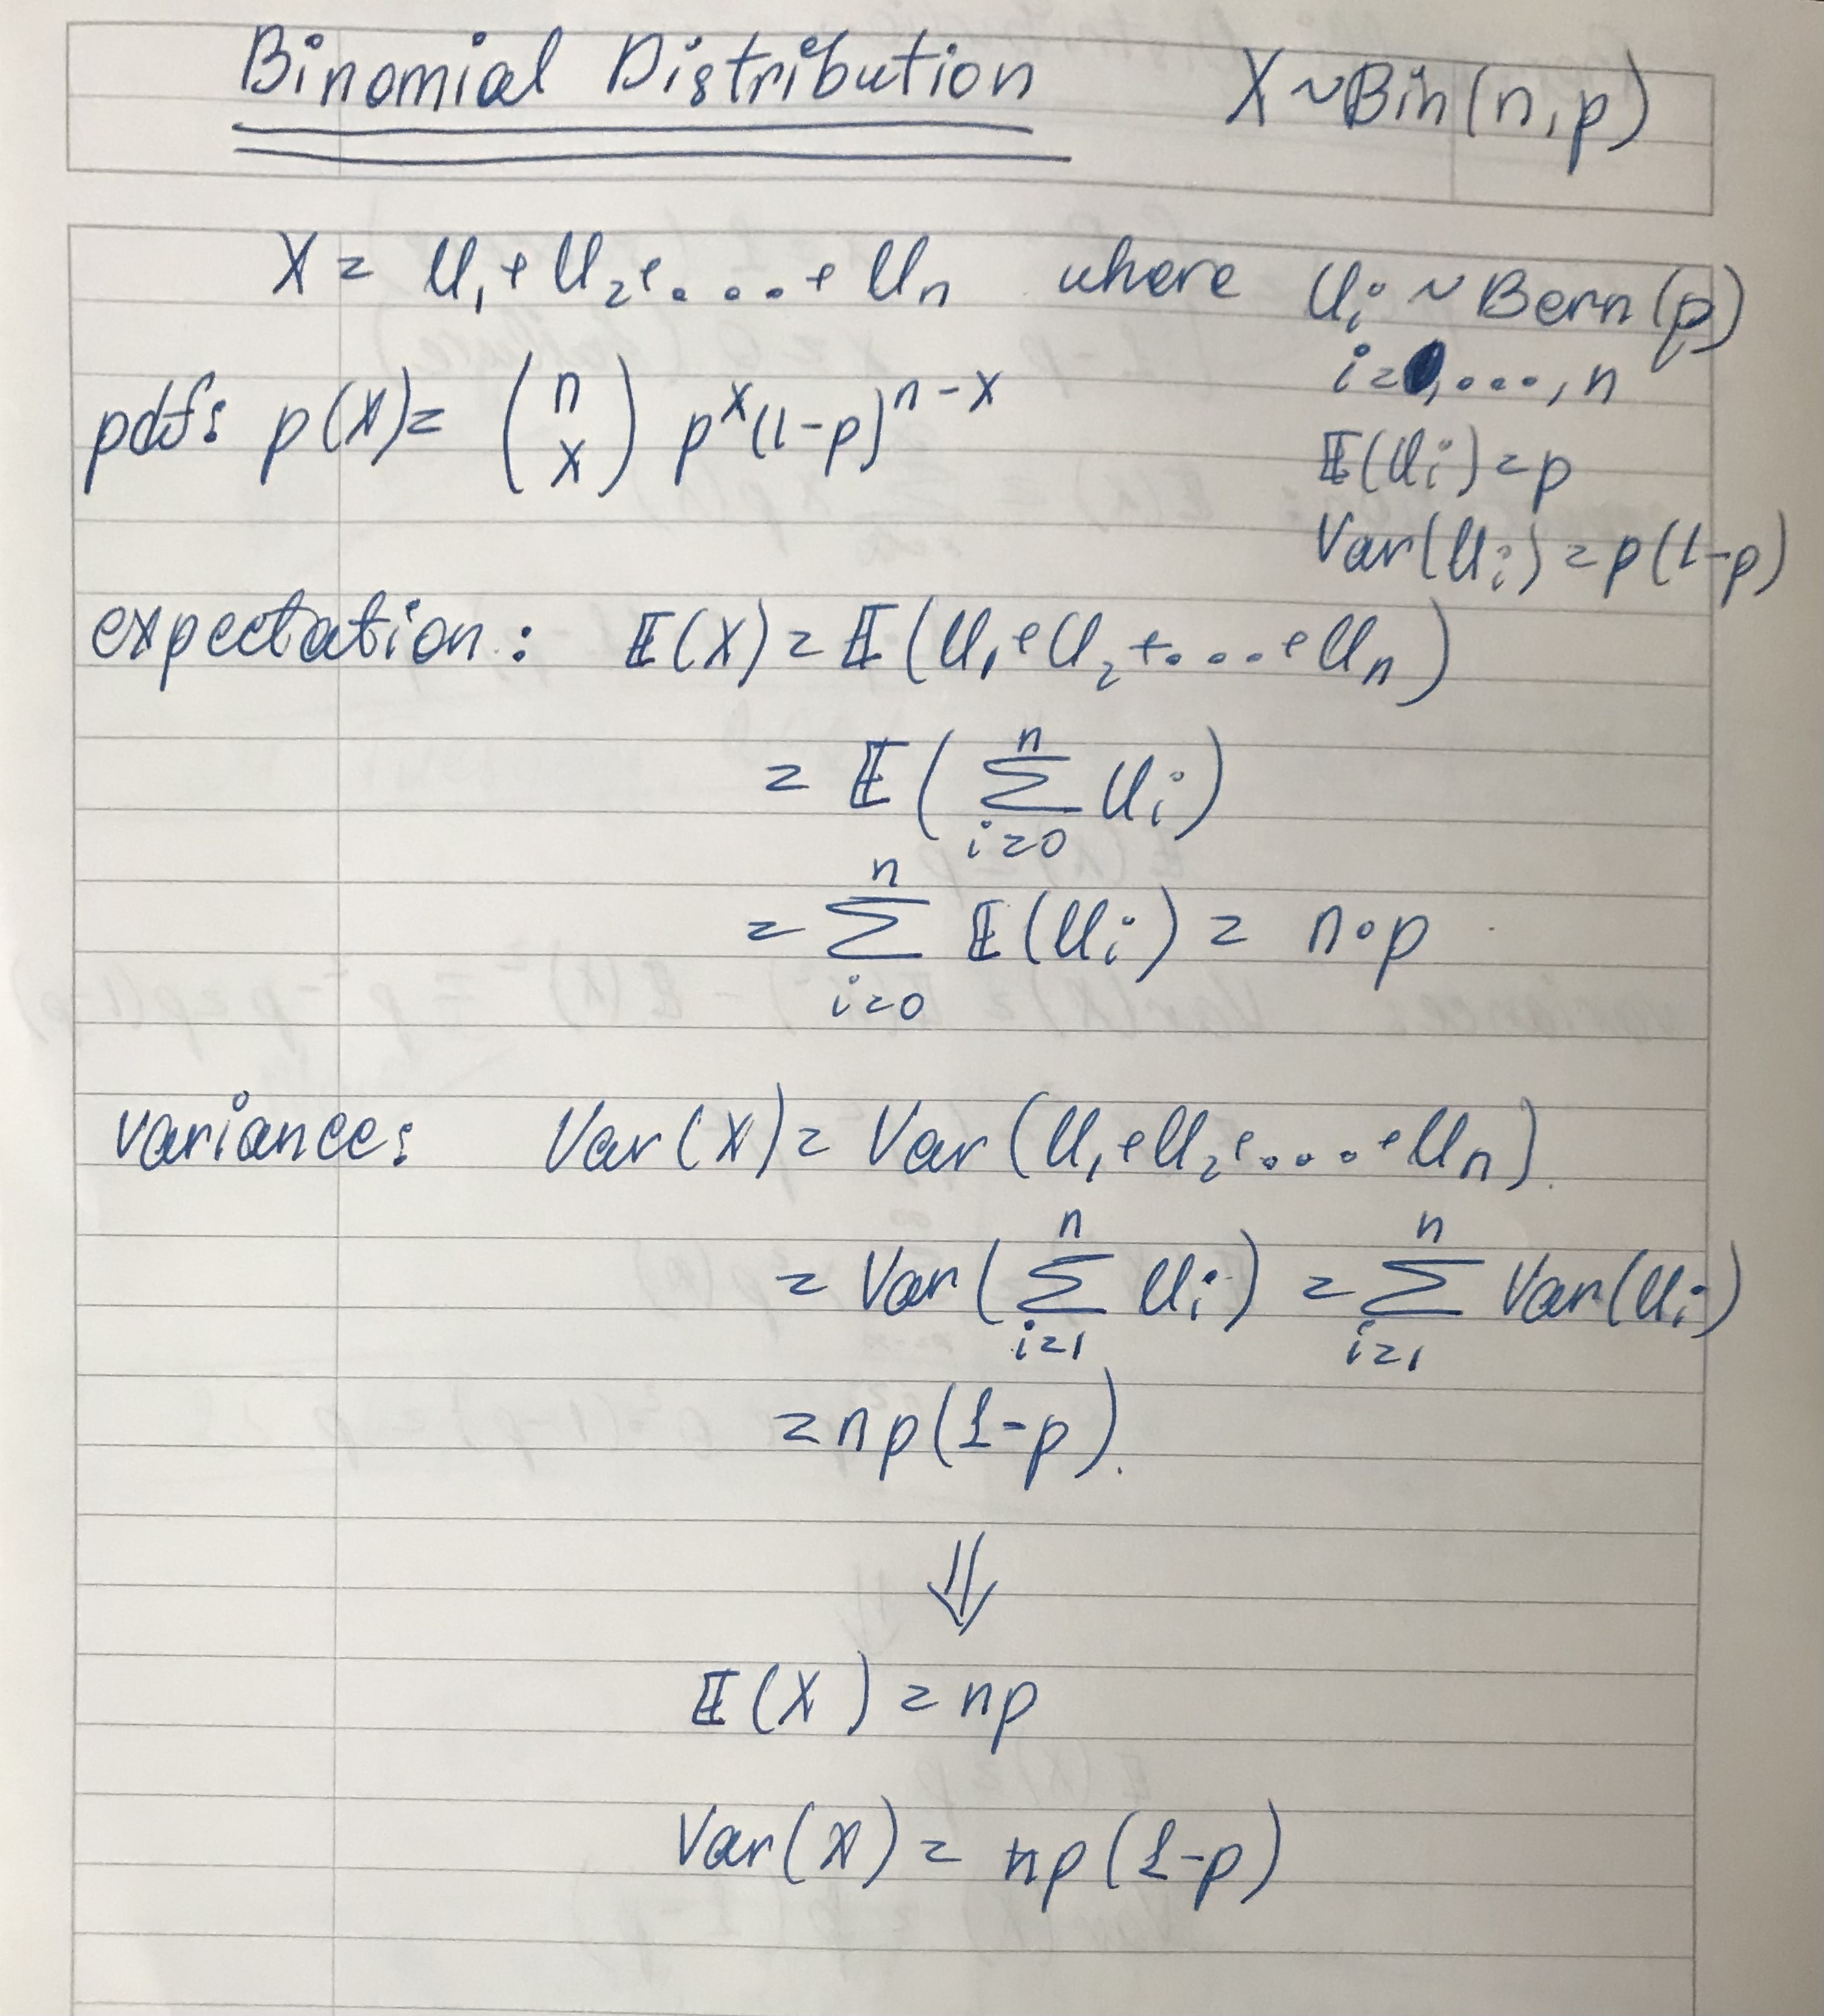 Binomial Distribution X ~ Bin(n, p)
X = U₁ + U₂ + .... + Uₙ where Uᵢ ~ Bern(p)
i = , ..., n
pdf: p(X) = (n x) p^x (1-p)^(n-x)
𝔼(Uᵢ) = p
Var(Uᵢ) = p(1-p)
expectation: 𝔼(X) = 𝔼(U₁ + U₂ + .... + Uₙ)
= 𝔼(∑_{i=0}^{n} Uᵢ)
= ∑_{i=0}^{n} 𝔼(Uᵢ) = n·p
variance: Var(X) = Var(U₁ + U₂ + .... + Uₙ).
= Var(∑_{i=1}^{n} Uᵢ) = ∑_{i=1}^{n} Var(Uᵢ)
= np(1-p).
⇓
𝔼(X) = np
Var(X) = np(1-p)